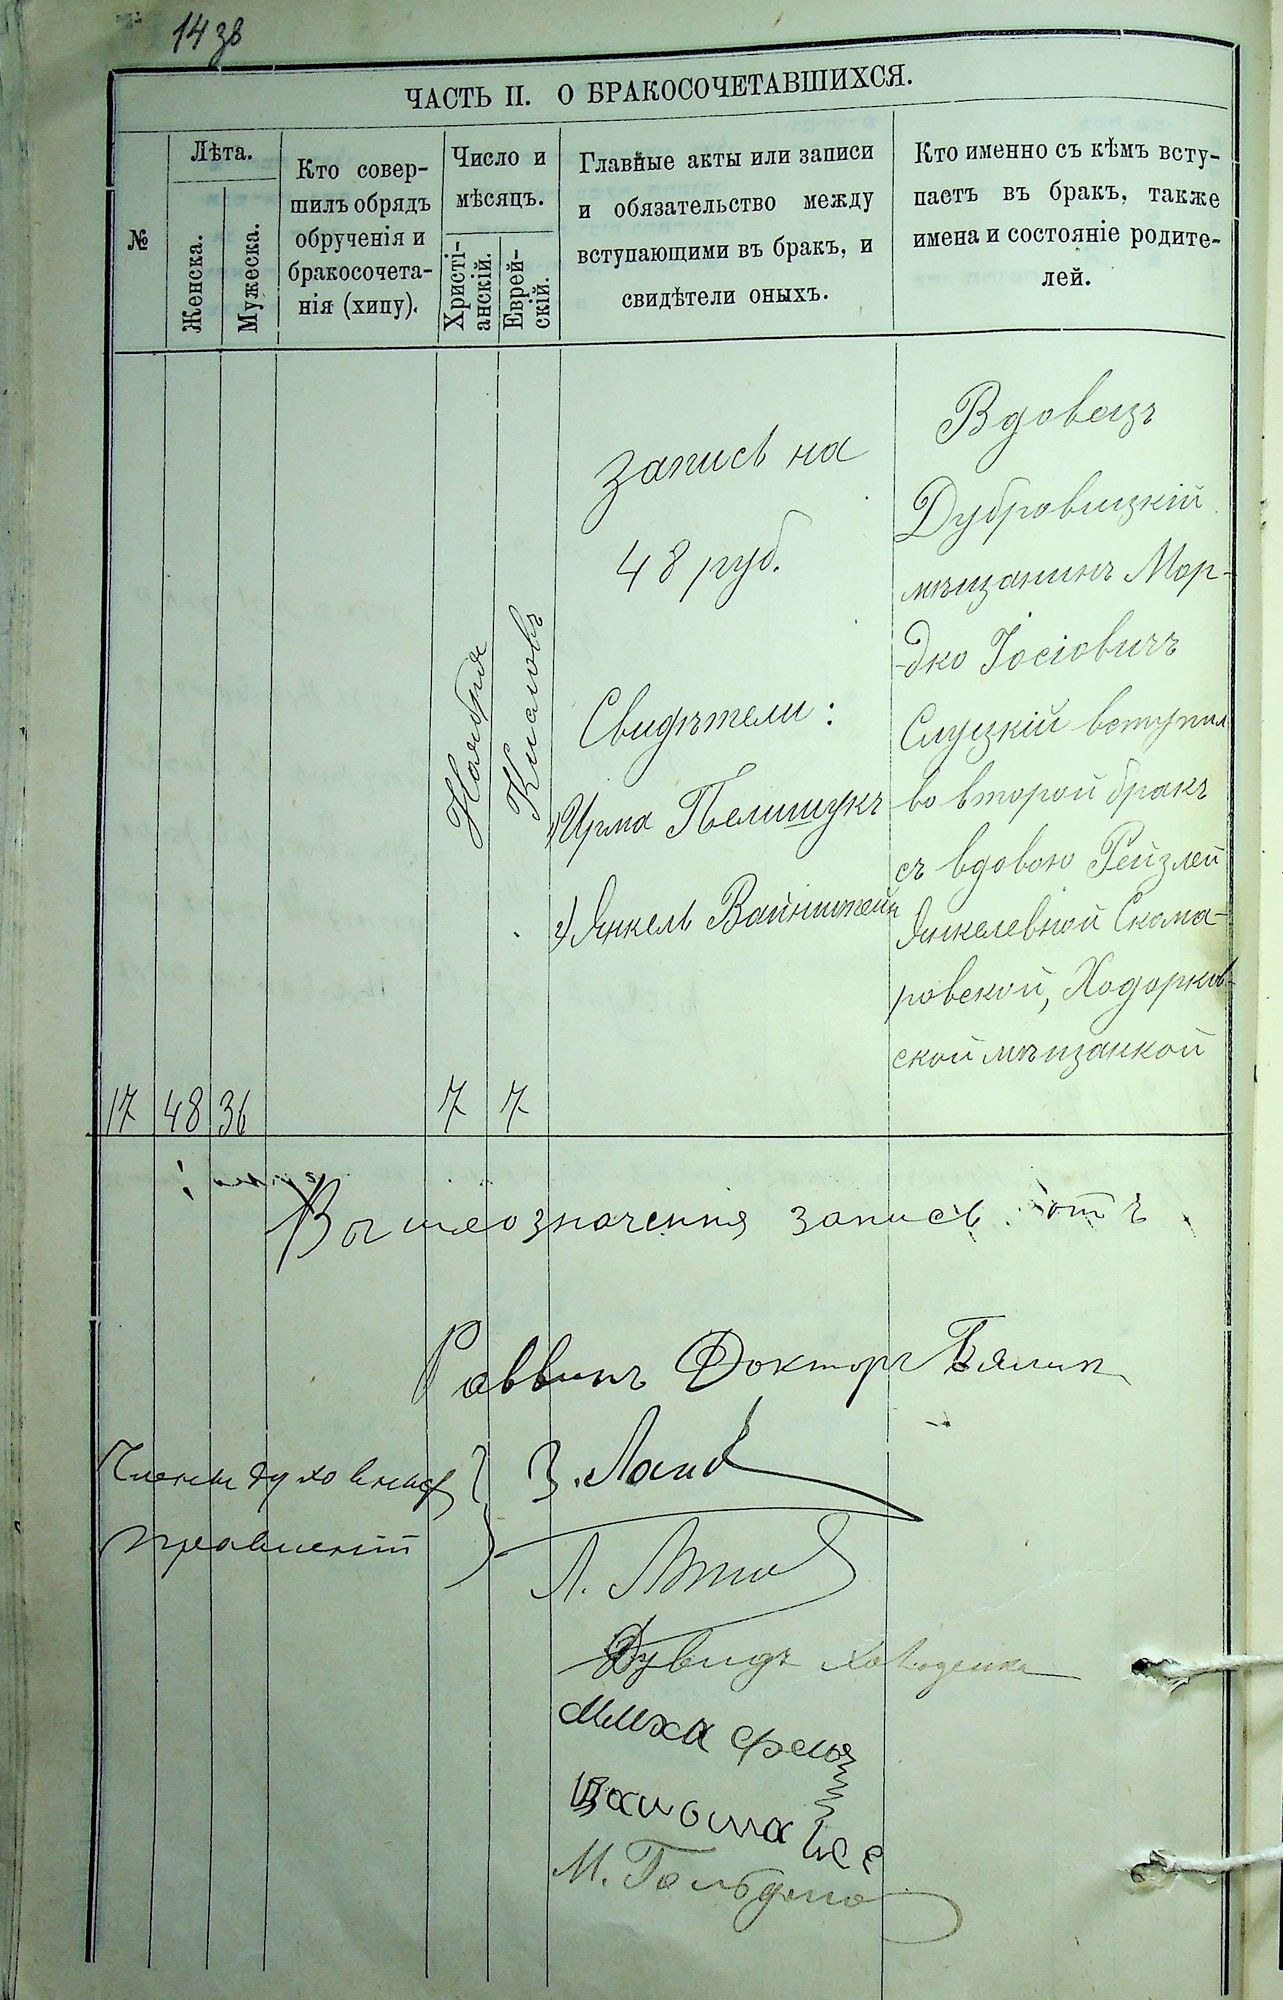 14 зв
ЧАСТЬ II. О БРАКОСОЧЕТАВШИХСЯ.
№
Лѣта.
Женска.
Мужеска.
Кто совер-
шилъ обрядъ
обрученія и
бракосочета-
нія (хипу).
Число и
мѣсяцъ.
Христі-
анскій.
Еврей-
скій.
Главные акты или записи
и обязательство между
вступающими въ бракъ, и
свидѣтели оныхъ.
Кто именно съ кѣмъ всту-
паетъ въ бракъ, также
имена и состояніе родите-
лей.
17
48
36
Ноября
7
Кислевъ
7
Запись на
48 руб.
Свидѣтели:
1) Ирма Пелишукъ
2) Янкель Вайнштейнъ
Вдовецъ
Дубровицкій
мѣщанинъ Мор-
дко Іосіовичъ
Слуцкій вступил
во второй бракъ
съ вдовою Рейзлей
Янкелевной Скома-
ровской, Ходорков-
ской мѣщанкой
Вышеозначення запись
Раввинъ Докторъ
Члены духовныхъ
правленій
З.
Л.
Дувидъ
М.